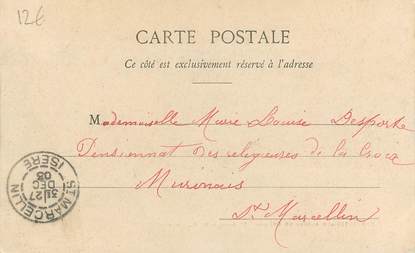 12€
CARTE POSTALE
Ce côté est exclusivement réservé à l'adresse
Mademoiselle Marie Louise Desporte
Pensionnat des religieuses de la Croix
Murinais
St Marcellin
ST MARCELLIN
31 27
DEC
03
ISÈRE